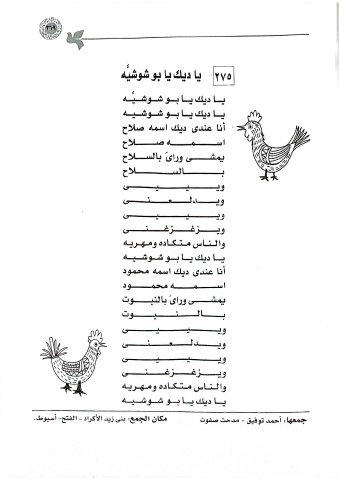 ٣٦٩
٢٧٥ يا ديك يا بو شوشيَّه
يا ديك يا بو شوشيَّه
يا ديك يا بو شوشيه
أنا عندى ديك اسمه صلاح
اسمه صلاح
يمشى وراىَ بالسلاح
بالسلاح
وييييى
ويدلعنى
وييييى
ويزغزغنى
والناس متكاده ومهريه
يا ديك يا بو شوشيه
أنا عندى ديك اسمه محمود
اسمه محمود
يمشى وراىَ بالنبوت
بالنبوت
وييييى
ويدلعنى
وييييى
ويزغزغنى
والناس متكاده ومهريه
يا ديك يا بو شوشيه
جمعها: أحمد توفيق - مدحت صفوت
مكان الجمع: بنى زيد الأكراد - الفتح- أسيوط.